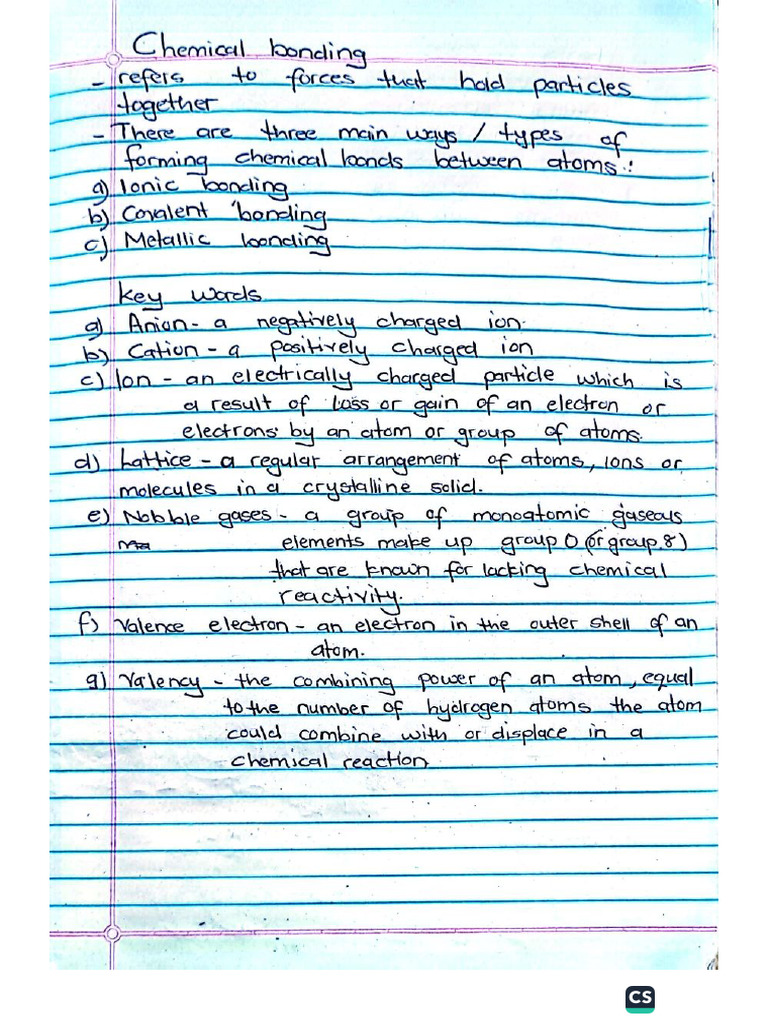 Chemical bonding
- refers to forces that hold particles
together
- There are three main ways / types of
forming chemical bonds between atoms:
a) Ionic bonding
b) Covalent bonding
c) Metallic bonding
Key words
a) Anion - a negatively charged ion.
b) Cation - a positively charged ion
c) Ion - an electrically charged particle which is
a result of loss or gain of an electron or
electrons by an atom or group of atoms.
d) Lattice - a regular arrangement of atoms, ions or
molecules in a crystalline solid.
e) Nobble gases - a group of monoatomic gaseous
elements make up group 0 (or group 8)
that are known for lacking chemical
reactivity.
f) Valence electron - an electron in the outer shell of an
atom.
g) Valency - the combining power of an atom, equal
to the number of hydrogen atoms the atom
could combine with or displace in a
chemical reaction.
CS